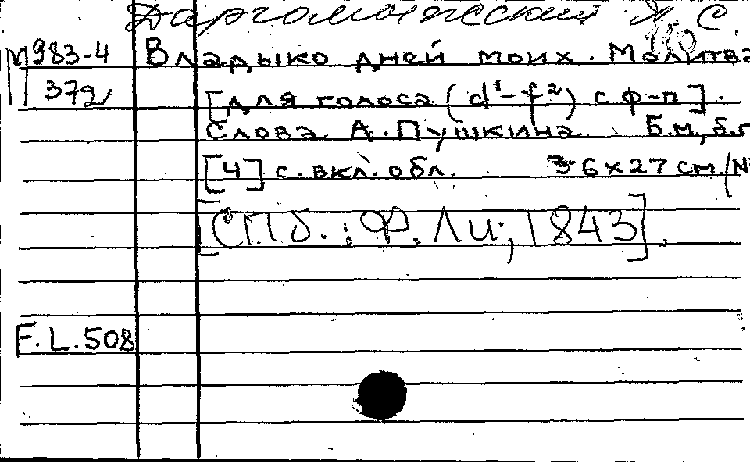 Даргомыжский А. С.
М 983-4
372
Владыко дней моих. Молитва
[для голоса (d¹-f²) с ф-п].
Слова А. Пушкина. Б.м., б.г.
[4] с. вкл. обл. 36х27 см. (№
[СПб.: Ф. Ли, 1843].
F.L.508